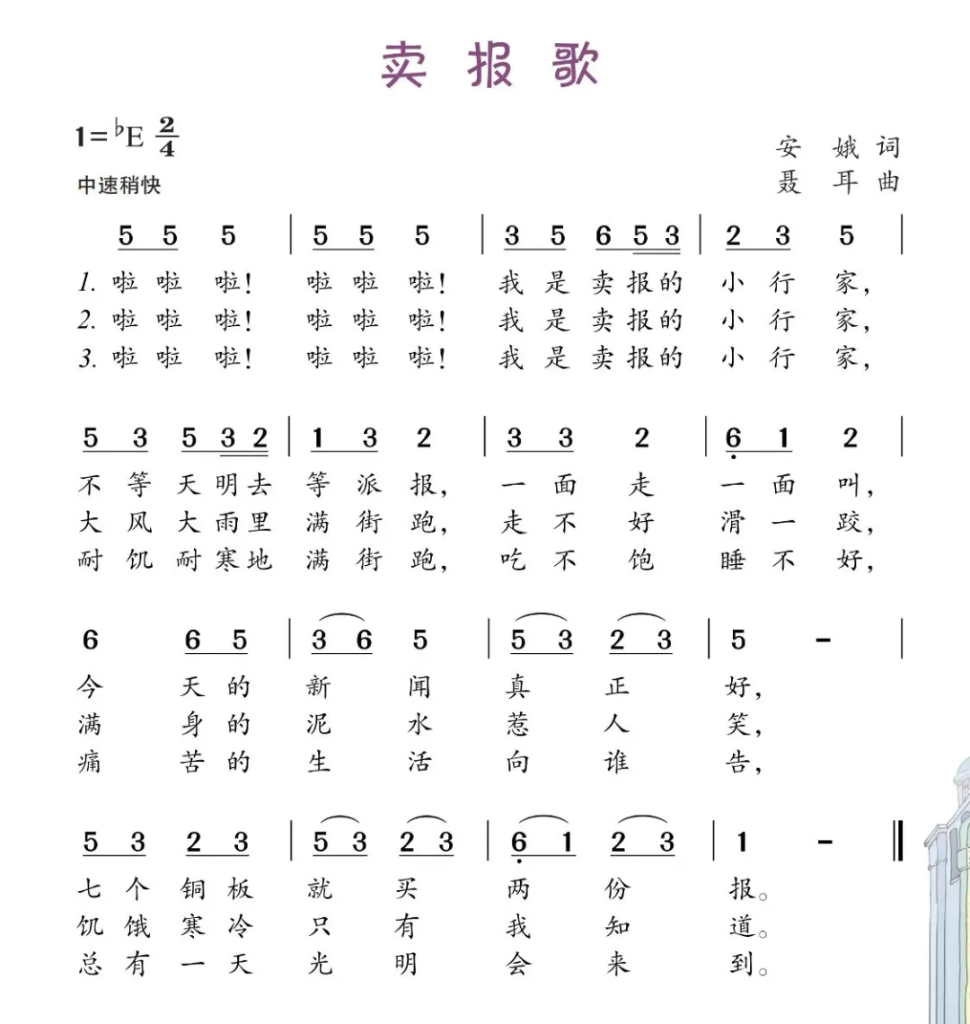 卖 报 歌
1=♭E 2/4
安 娥 词
中速稍快
聂 耳 曲
5 5 5 | 5 5 5 | 3 5 6 5 3 | 2 3 5 |
1. 啦 啦 啦! 啦 啦 啦! 我 是 卖 报 的 小 行 家,
2. 啦 啦 啦! 啦 啦 啦! 我 是 卖 报 的 小 行 家,
3. 啦 啦 啦! 啦 啦 啦! 我 是 卖 报 的 小 行 家,
5 3 5 3 2 | 1 3 2 | 3 3 2 | 6̣ 1 2 |
不 等 天 明 去 等 派 报, 一 面 走 一 面 叫,
大 风 大 雨 里 满 街 跑, 走 不 好 滑 一 跤,
耐 饥 耐 寒 地 满 街 跑, 吃 不 饱 睡 不 好,
6 6 5 | 3 6 5 | 5 3 2 3 | 5 - |
今 天 的 新 闻 真 正 好,
满 身 的 泥 水 惹 人 笑,
痛 苦 的 生 活 向 谁 告,
5 3 2 3 | 5 3 2 3 | 6̣ 1 2 3 | 1 - ‖
七 个 铜 板 就 买 两 份 报。
饥 饿 寒 冷 只 有 我 知 道。
总 有 一 天 光 明 会 来 到。